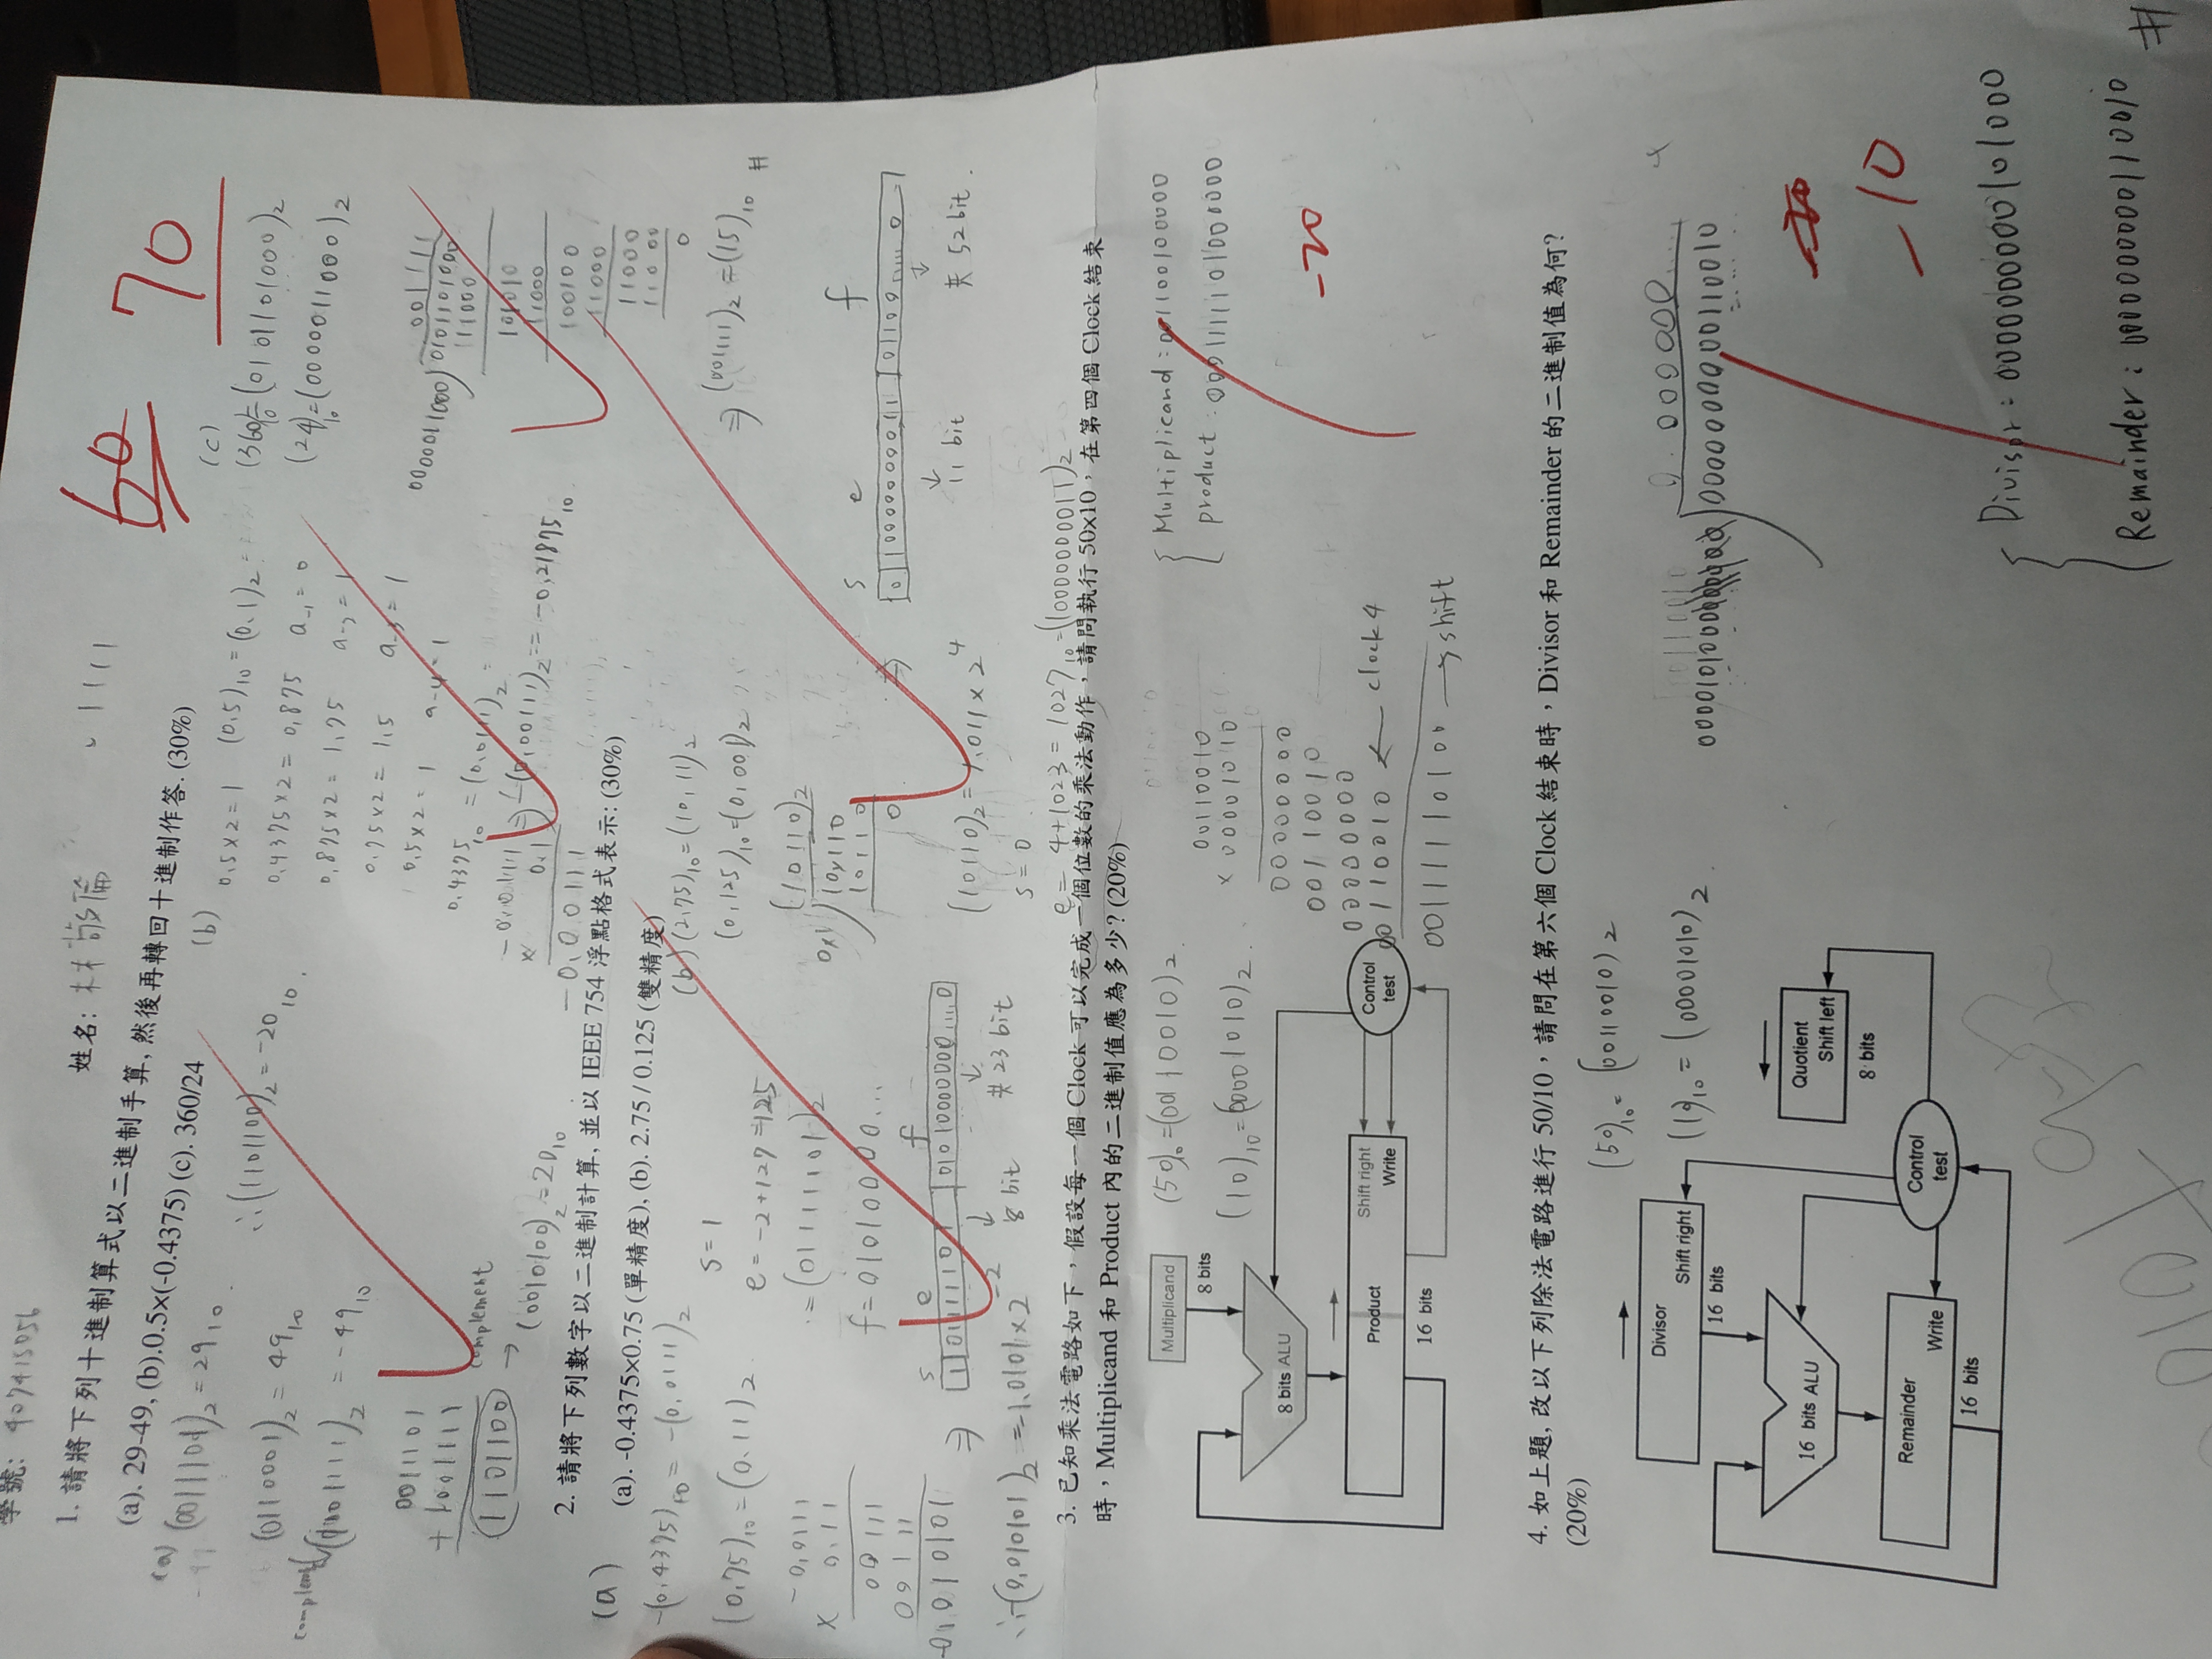 學號: 407415056
姓名: 林敬倫
60 70
1. 請將下列十進制算式以二進制手算, 然後再轉回十進制作答. (30%)
(a). 29-49, (b).0.5×(-0.4375) (c). 360/24
(a) (0011101)₂ = 29₁₀
(0110001)₂ = 49₁₀
complement (1001111)₂ = -49₁₀
0011101
+ 1001111
1101100
complement
→ (0010100)₂ = 20₁₀
∴(1101100)₂ = -20₁₀.
(b)
0.5×2 = 1 (0.5)₁₀ = (0.1)₂
0.4375×2 = 0.875 a₋₁ = 0
0.875×2 = 1.75 a₋₂ = 1
0.75×2 = 1.5 a₋₃ = 1
0.5×2 = 1 a₋₄ = 1
0.4375₁₀ = (0.0111)₂
× 0.1
-0.00111
⇒ -(0.00111)₂ == -0.21875₁₀
(c)
(360)₁₀=(0101101000)₂
(24)₁₀=(0000011000)₂
001111
0000011000 0101101000
111000
101010
11000
100100
11000
11000
11000
0
⇒ (001111)₂ = (15)₁₀ #
2. 請將下列數字以二進制計算, 並以 IEEE 754 浮點格式表示: (30%)
(a). -0.4375×0.75 (單精度), (b). 2.75 / 0.125 (雙精度)
(a)
-(0.4375)₁₀ = -(0.0111)₂
(0.75)₁₀ = (0.11)₂
-0.0111
× 0.11
00111
00111
-0.010101
∴-(0.010101)₂ = -1.0101×2⁻²
s = 1
e = -2+127 = 125
= (01111101)₂
f = 01010000...
s e f
⇒ 1 01111101 01010000000....0
8 bit 共 23 bit
(b) (2.75)₁₀ = (10.11)₂
(0.125)₁₀ = (0.001)₂
(10110)₂
10110
10110
0
(10110)₂ = 1.011×2⁴
s = 0
e = 4+1023 = 1027₁₀ = (10000000011)₂
s e f
⇒ 0 10000000011 01100.....0
11 bit 共 52 bit.
3. 已知乘法電路如下，假設每一個 Clock 可以完成一個位數的乘法動作，請問執行 50×10，在第四個 Clock 結束
時，Multiplicand 和 Product 內的二進制值應為多少? (20%)
Multiplicand
8 bits
8 bits ALU
Product
Shift right
Write
16 bits
Control
test
(50)₁₀=(00110010)₂
(10)₁₀=(00001010)₂.
00110010
× 00001010
00000000
00110010
00000000
00110010 ← clock 4
00111110100 → shift
Multiplicand : 001100100000
product : 0001111101000000
-20
4. 如上題, 改以下列除法電路進行 50/10，請問在第六個 Clock 結束時，Divisor 和 Remainder 的二進制值為何?
(20%)
Divisor
Shift right
16 bits
16 bits ALU
Quotient
Shift left
8 bits
Remainder
Write
16 bits
Control
test
(50)₁₀= (00110010)₂
(10)₁₀ = (00001010)₂
0.000000....
0000000000110010
-10
Divisor : 0000000000101000
Remainder : 0000000000110010 #